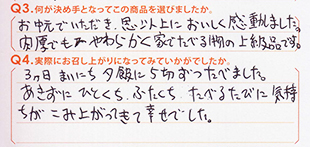 Q3.何が決め手となってこの商品を選びましたか。
お中元でいただき、思い以上においしく感動しました。
肉厚でもやわらかく家でたべる物の上級品です。
Q4.実際にお召し上がりになってみていかがでしたか。
3ヶ日まいにち夕飯に5切ずつたべました。
あきずにひとくち、ふたくち、たべるたびに気持
ちがこみ上がってきて幸せでした。